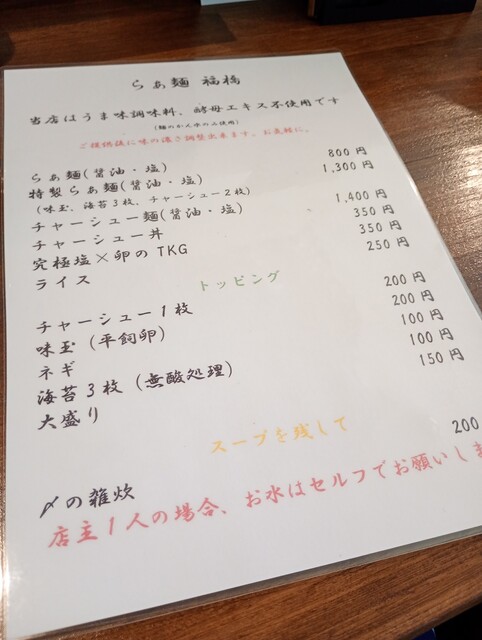 らぁ麺 福橋
当店はうま味調味料、酵母エキス不使用です
(麺のかん水のみ使用)
ご提供後に味の濃さ調整出来ます、お気軽に。
らぁ麺(醤油・塩) 800円
特製らぁ麺(醤油・塩) 1,300円
(味玉、海苔3枚、チャーシュー2枚)
チャーシュー麺(醤油・塩) 1,400円
チャーシュー丼 350円
究極塩×卵のTKG 350円
ライス 250円
トッピング
チャーシュー1枚 200円
味玉(平飼卵) 200円
ネギ 100円
海苔3枚(無酸処理) 100円
大盛り 150円
スープを残して
〆の雑炊 200
店主1人の場合、お水はセルフでお願いしま